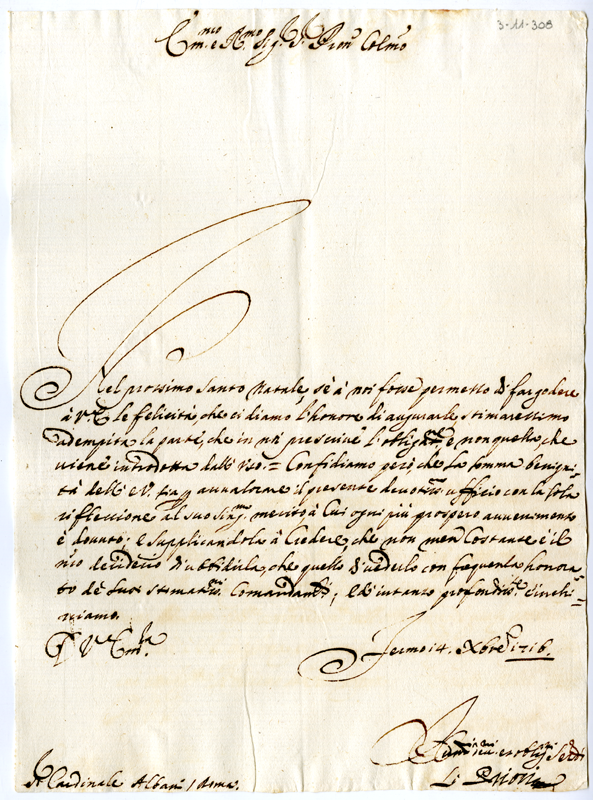 3-11-308
Em.mo e R.mo Sig.r S.r Pron Colmo
Nel prossimo Santo Natale, sè à noi fosse permesso di far godere
à V.E. le felicità, che ci diamo l'honore di augurarle stimaressimo
adempita la parte, che in noi prescrive l'obligat.ne, e non quella, che
viene introdotta dall'uso.= Confidiamo però, che la somma benigni=
tà dell'E.V. sia p avvalorare il presente devot.mo ufficio con la sola
riflessione al suo merito à Cui ogni più prospero avvenimento
è dovuto: e supplicandola à Credere, che non men Costante è il
nio desiderio d'ubidirla, che quello d'vederlo con frequenta honora=
to de suoi stimatis.mi Comandam.ti, e d'intanto profondis.te c'inchi=
niamo.
D V.E. Em.za
Fermo 14. Xbre 1716.
Card.e Albani / Roma.
Li Priori